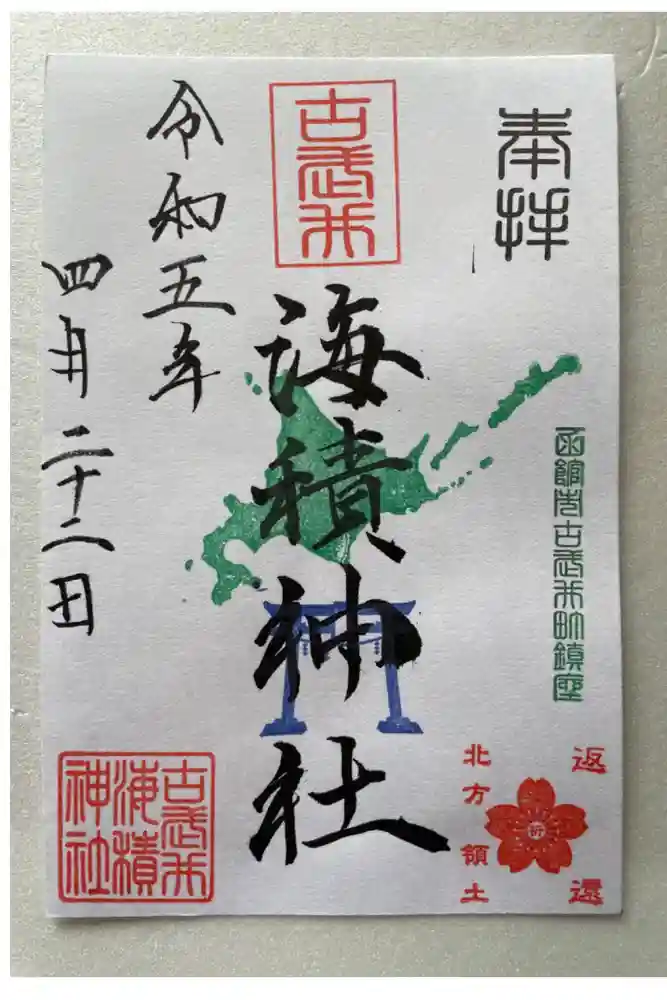 奉拝
函館市古武井町鎮座
返還
北方領土
祈
古武井
海積神社
古武井
海積
神社
令和五年
四月二十二日